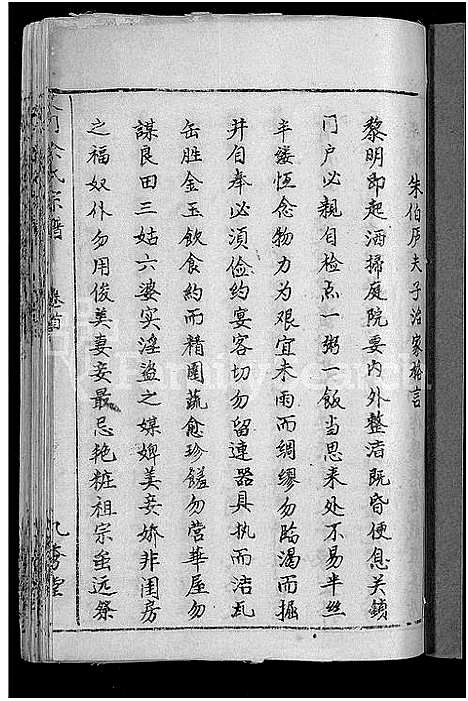 朱伯庐夫子治家格言
黎明即起洒掃庭院要内外整洁既昏便息关鎖
门户必親自检点一粥一飯当思来处不易半丝
半缕恆念物力为艰宜未雨而绸缪勿臨渴而掘
井自奉必須俭約宴客切勿留連器具执而洁瓦
缶胜金玉飲食約而精園蔬愈珍饈勿营華屋勿
謀良田三姑六婆实淫盗之媒婢美妾娇非闺房
之福奴仆勿用俊美妻妾最忌艳粧祖宗虽远祭
氏宗譜
卷首
堂
FamilySearch